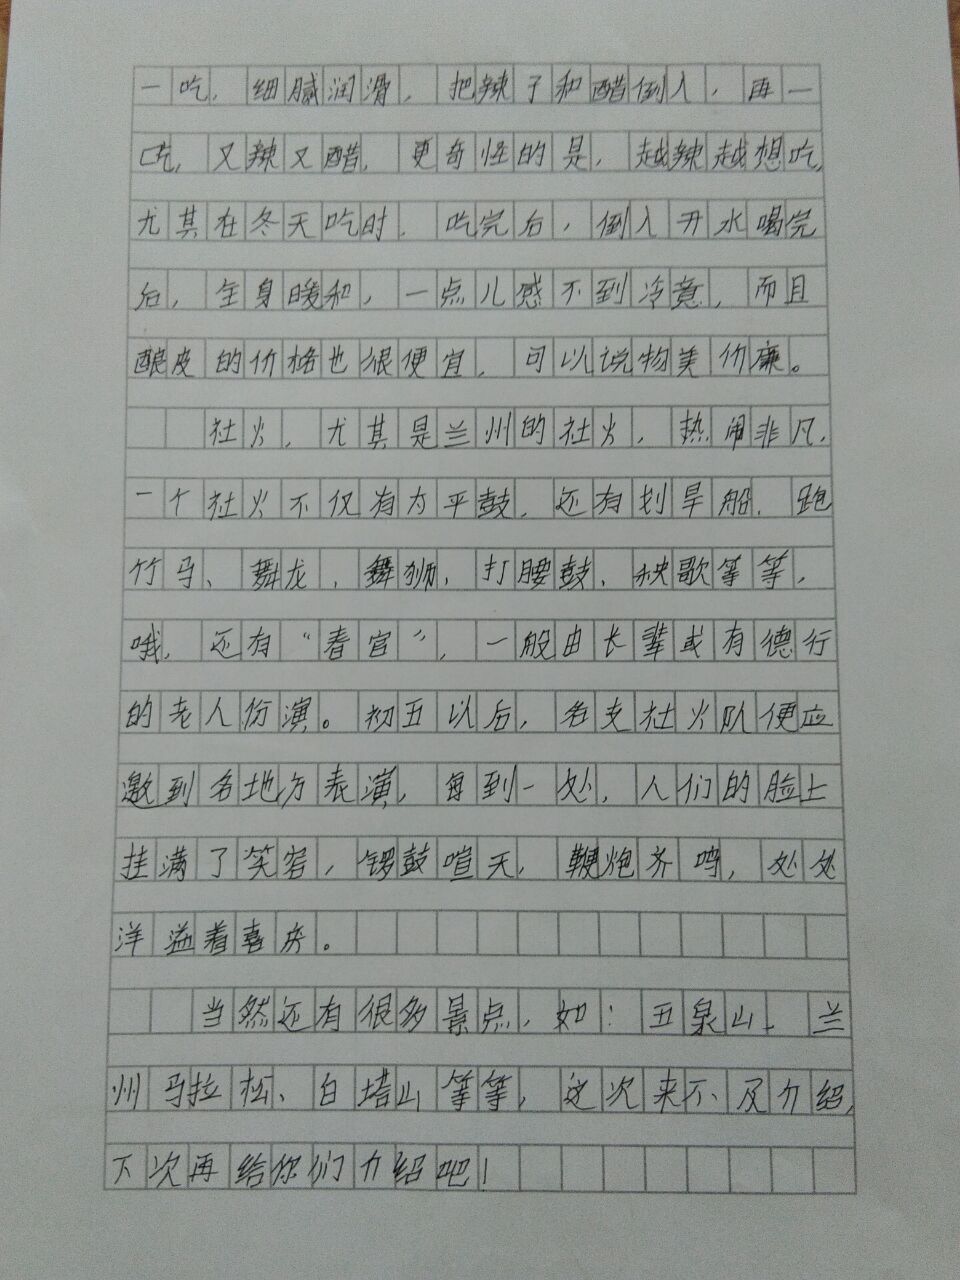 一吃，细腻润滑，把辣子和醋倒入，再一
吃，又辣又醋，更奇怪的是，越辣越想吃，
尤其在冬天吃时，吃完后，倒入开水喝完
后，全身暖和，一点儿感不到冷意，而且
酿皮的价格也很便宜，可以说物美价廉。
社火，尤其是兰州的社火，热闹非凡，
一个社火不仅有太平鼓，还有划旱船、跑
竹马、舞龙、舞狮、打腰鼓、秧歌等等，
哦，还有“春官”，一般由长辈或有德行
的老人份演。初五以后，各支社火队便应
邀到各地方表演，每到一处，人们的脸上
挂满了笑容，锣鼓喧天，鞭炮齐鸣，处处
洋溢着喜庆。
当然还有很多景点，如：五泉山、兰
州马拉松、白塔山等等，这次来不及介绍，
下次再给你们介绍吧！